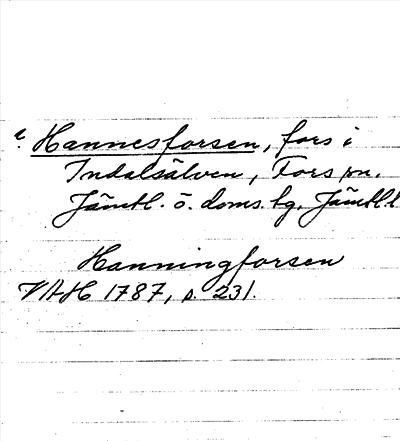 Hannesforsen, fors i
Indalsälven, Fors sn.
Jämtl. ö. doms. hg. Jämtl. l.
Hanningforsen
VAH 1787, s. 231.